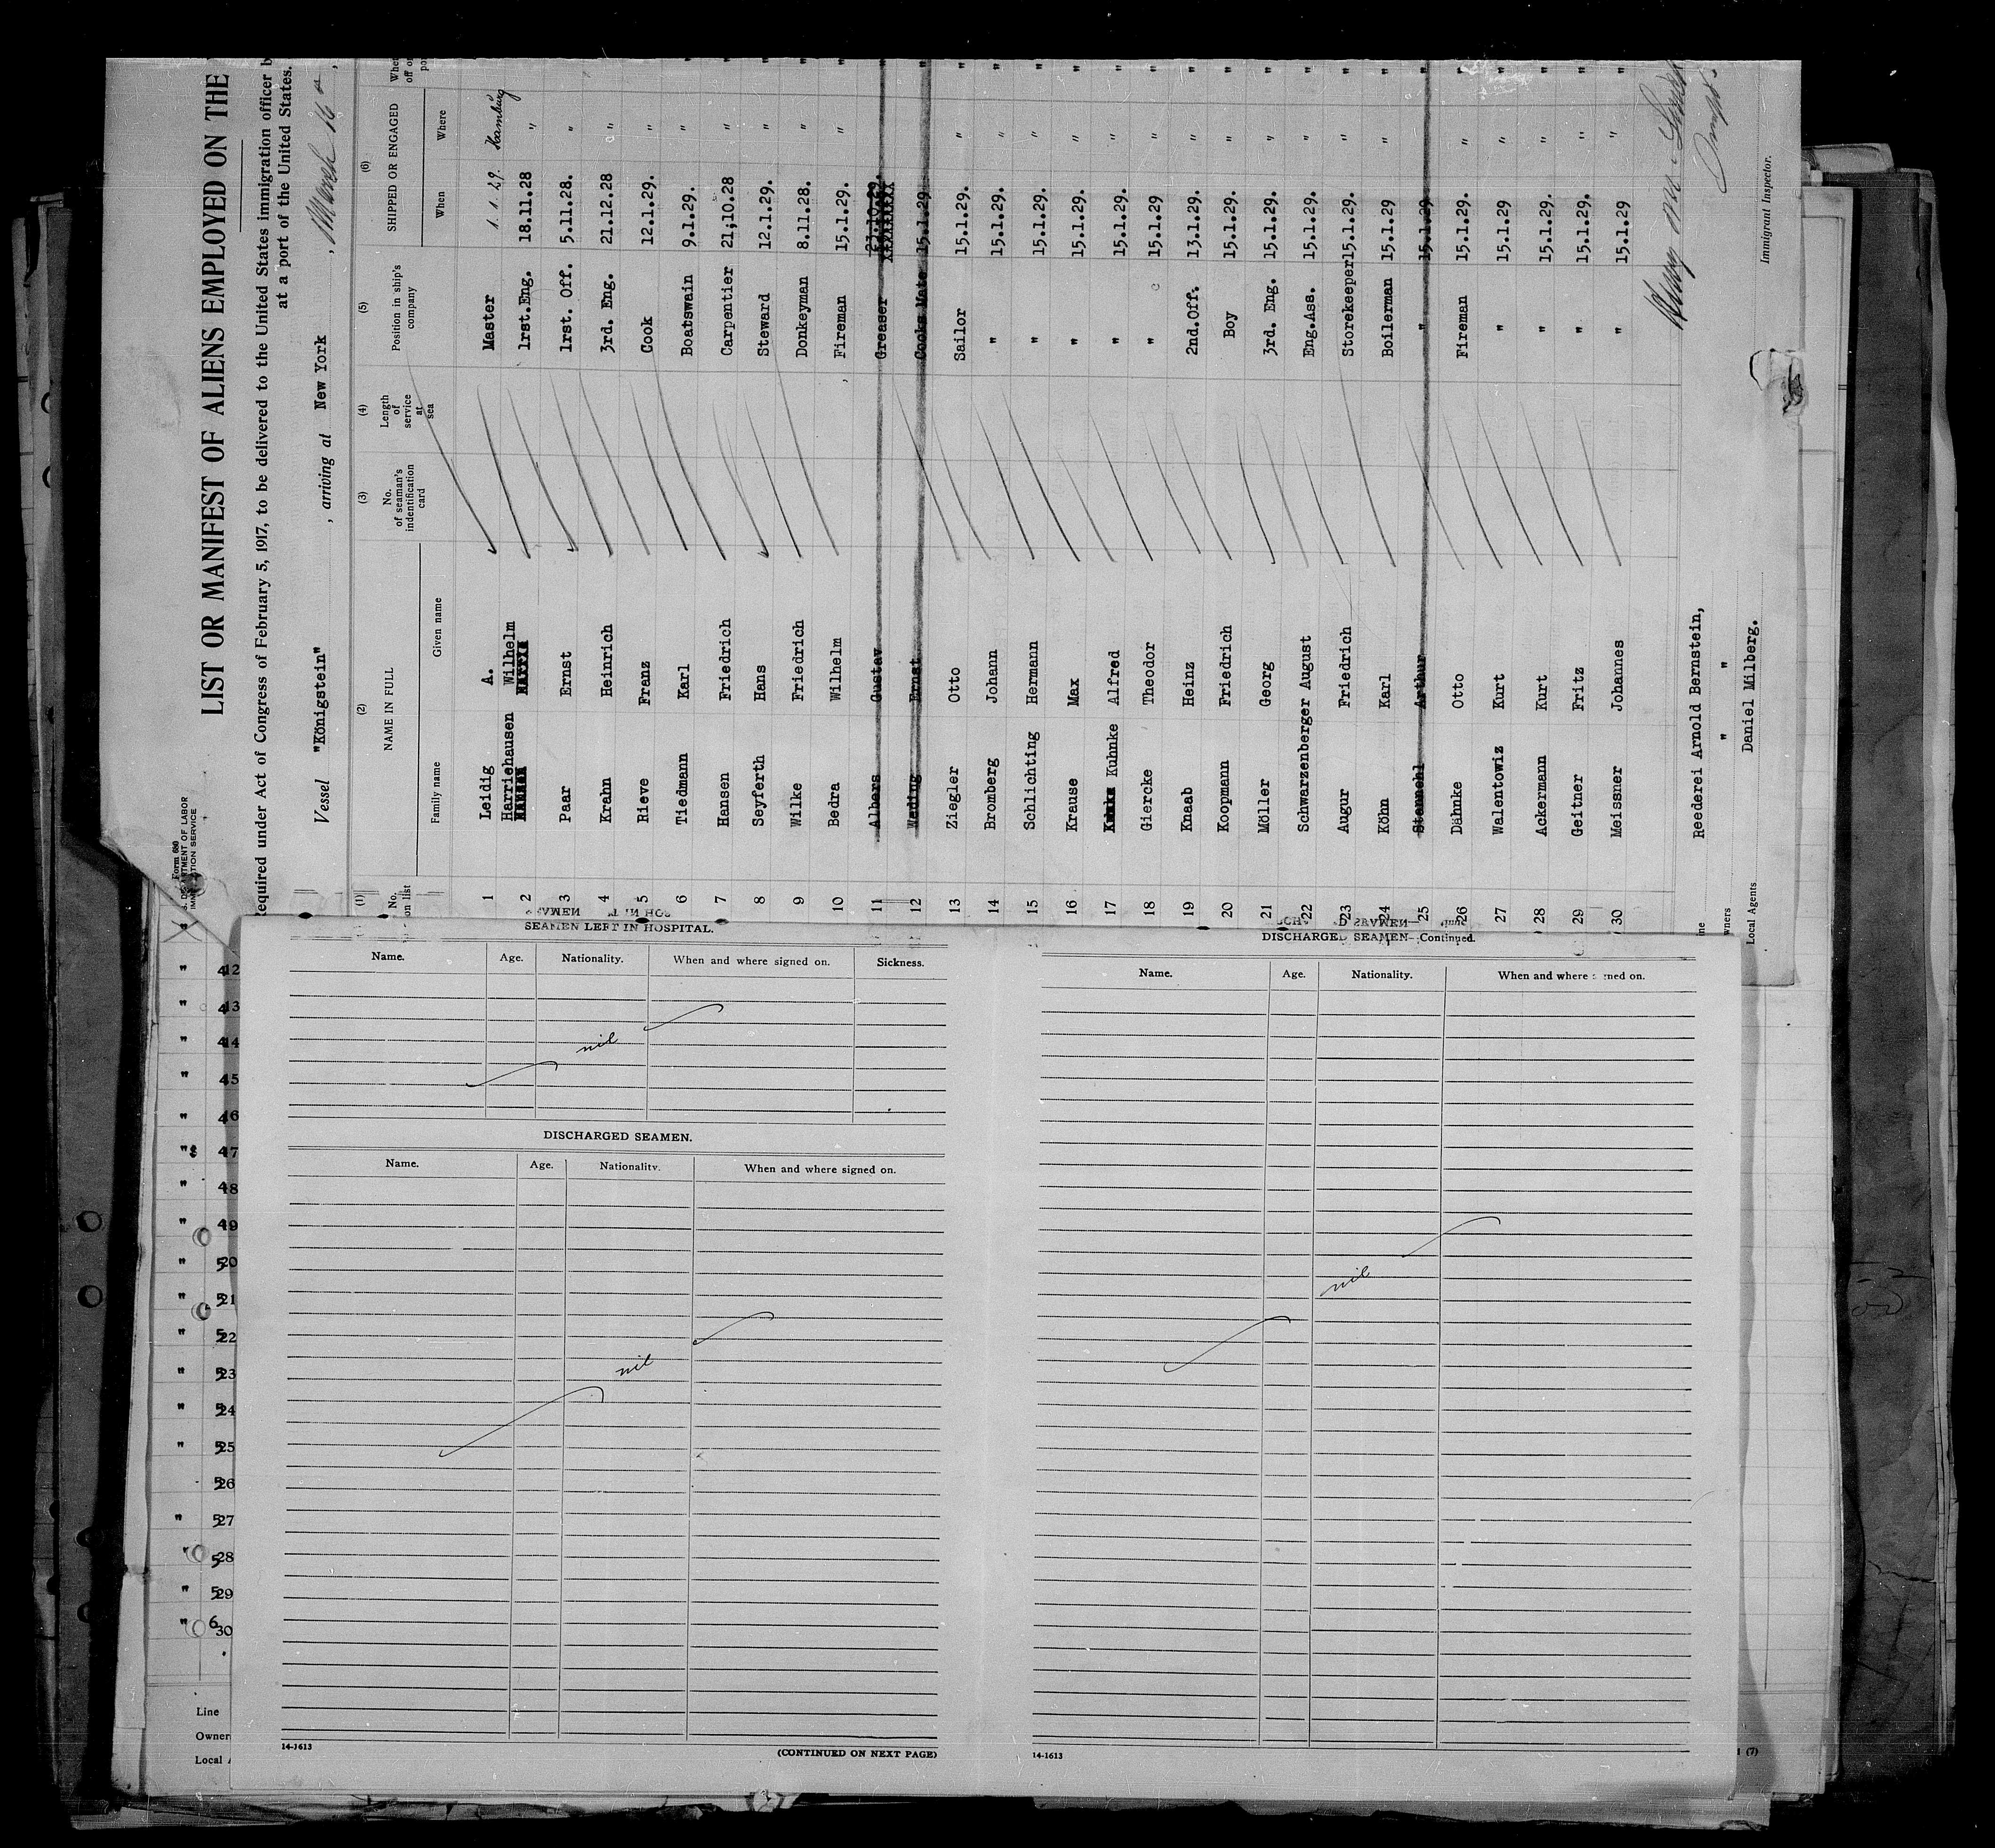 Form 680
IMMIGRATION SERVICE
LIST OR MANIFEST OF ALIENS EMPLOYED ON THE
Required under Act of Congress of February 5, 1917, to be delivered to the United States immigration officer b
at a port of the United States.
Vessel "Königstein" , arriving at New York , March 16
(1) (2) (3) (4) (5) (6)
No. on list NAME IN FULL No. of seaman's indentification card Length of service at sea Position in ship's company SHIPPED OR ENGAGED
Family name Given name When Where
1 Leidig A. Master 1.1.29. Hamburg
2 Harriehausen Wilhelm 1rst.Eng. 18.11.28 "
3 Paar Ernst 1rst. Off. 5.11.28. " "
4 Krahn Heinrich 3rd. Eng. 21.12.28 " "
5 Rieve Franz Cook 12.1.29. " "
6 Tiedmann Karl Boatswain 9.1.29. " "
7 Hansen Friedrich Carpentier 21;10.28 " "
8 Seyferth Hans Steward 12.1.29. " "
9 Wilke Friedrich Donkeyman 8.11.28. " "
10 Bedra Wilhelm Fireman 15.1.29. " "
11 Albers Gustav Greaser 21.10.29. "
12 Weding Ernst Cooks Mate 15.1.29 "
13 Ziegler Otto Sailor 15.1.29. " "
14 Bromberg Johann " 15.1.29. " "
15 Schlichting Hermann " 15.1.29. " "
16 Krause Max " 15.1.29. " "
17 Kuhnke Alfred " 15.1.29. " "
18 Giercke Theodor " 15.1.29 " "
19 Knaab Heinz 2nd.Off. 13.1.29 " "
20 Koopmann Friedrich Boy 15.1.29. " "
21 Möller Georg 3rd. Eng. 15.1.29. " "
22 Schwarzenberger August Eng.Ass. 15.1.29. " "
23 Augur Friedrich Storekeeper 15.1.29. " "
24 Köhn Karl Boilerman 15.1.29 " "
25 Stannehl Arthur " 15.1.29 "
26 Dähnke Otto Fireman 15.1.29. " "
27 Walentowiz Kurt " 15.1.29 " "
28 Ackermann Kurt " 15.1.29. " "
29 Geitner Fritz " 15.1.29. " "
30 Meissner Johannes " 15.1.29 " "
Reederei Arnold Bernstein,
" " "
Local Agents Daniel Milberg.
Immigrant Inspector.
SEAMEN LEFT IN HOSPITAL.
Name. Age. Nationality. When and where signed on. Sickness.
nil
DISCHARGED SEAMEN.
Name. Age. Nationality. When and where signed on.
nil
14-1613 (CONTINUED ON NEXT PAGE)
DISCHARGED SEAMEN—Continued.
Name. Age. Nationality. When and where signed on.
nil
14-1613
" 42
" 43
" 44
" 45
" 46
" 47
" 48
" 49
" 50
" 51
" 52
" 53
" 54
" 55
56
" 57
" 58
" 59
" 60
Line
Owner
Local